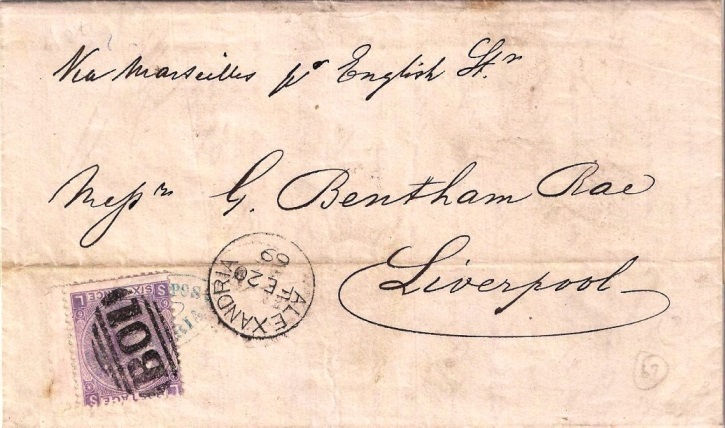 Via Marseilles pr English Str
Messrs G. Bentham Rae
Liverpool
ALEXANDRIA
FE 20
69
B01
SIX
POS